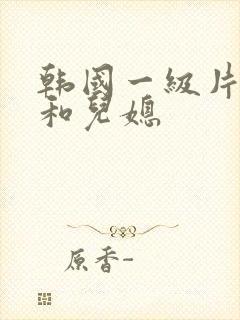 韩国一级片
和儿媳
原香-